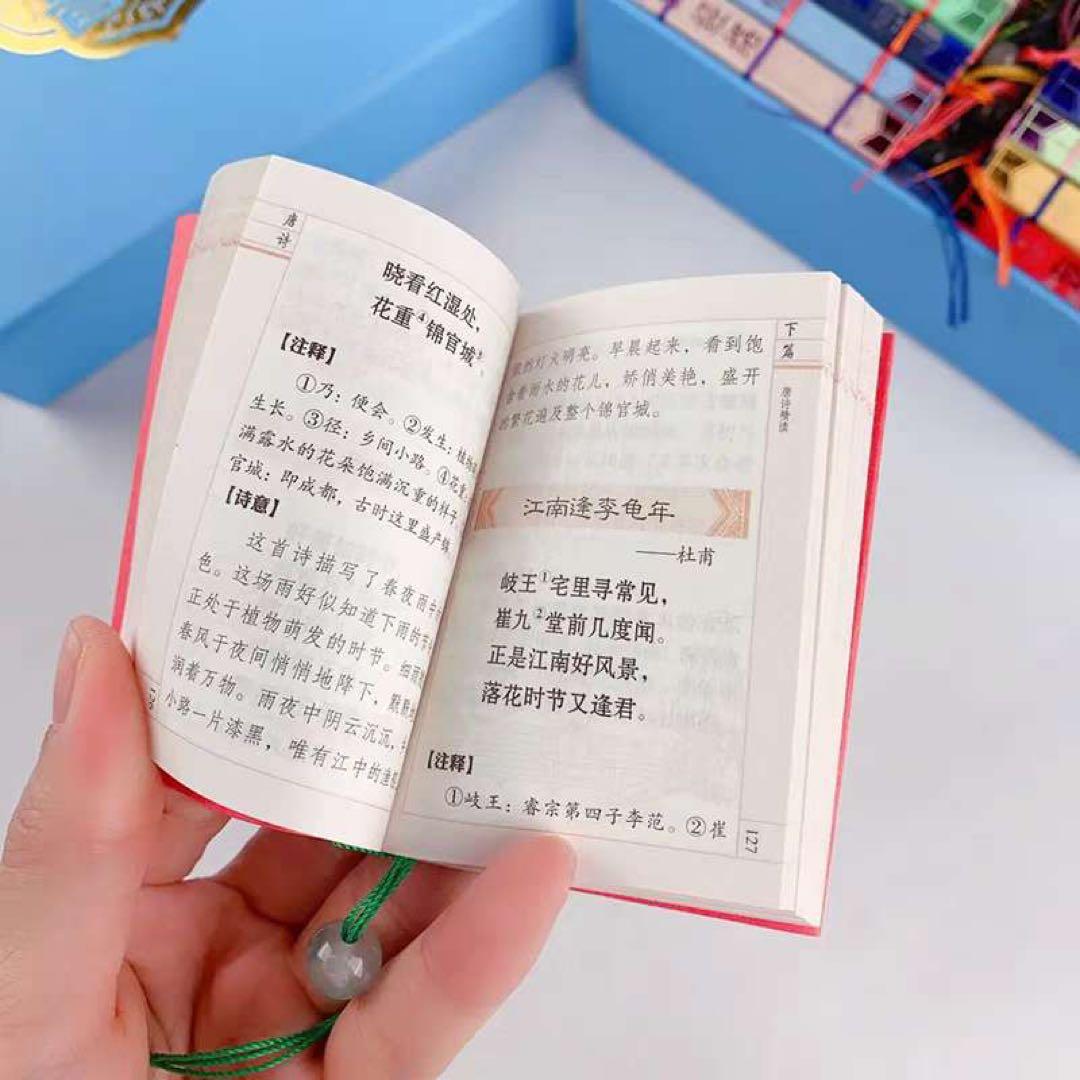 唐诗
晓看红湿处，
花重④锦官城
【注释】
①乃：便会。②发生：植物
生长。③径：乡间小路。④花重：
满露水的花朵饱满沉重的样子。
官城：即成都，古时这里盛产锦
【诗意】
这首诗描写了春夜雨中
色。这场雨好似知道下雨的
正处于植物萌发的时节。细雨
春风于夜间悄悄地降下，默默
润着万物。雨夜中阴云沉沉，
小路一片漆黑，唯有江中的渔
下篇
唐诗精读
灯火明亮。早晨起来，看到饱
含着雨水的花儿，娇俏美艳，盛开
的繁花遍及整个锦官城。
江南逢李龟年
——杜甫
岐王①宅里寻常见，
崔九②堂前几度闻。
正是江南好风景，
落花时节又逢君。
【注释】
①岐王：睿宗第四子李范。②崔
127